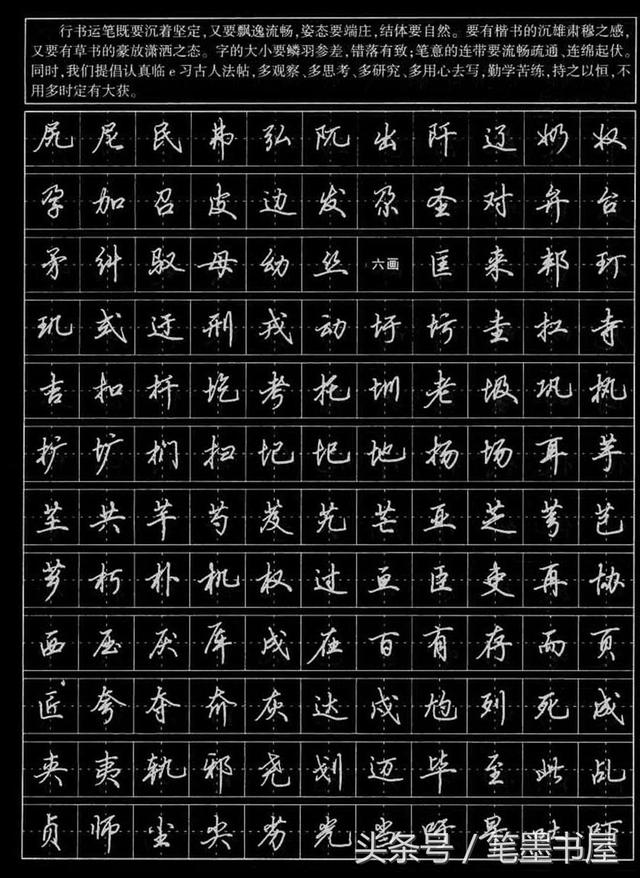 行书运笔既要沉着坚定，又要飘逸流畅，姿态要端庄，结体要自然。要有楷书的沉雄肃穆之感，
又要有草书的豪放潇洒之态。字的大小要鳞羽参差，错落有致；笔意的连带要流畅疏通、连绵起伏。
同时，我们提倡认真临e习古人法帖，多观察、多思考、多研究、多用心去写，勤学苦练，持之以恒，不
用多时定有大获。
尻 尼 民 弗 弘 阮 出 阡 辽 奶 奴
孕 加 召 皮 边 发 尕 圣 对 弁 台
矛 纠 驭 母 幼 丝 六画 匡 耒 邦 玎
玑 式 迂 刑 戎 动 圩 圬 圭 扛 寺
吉 扣 扦 圪 考 托 圳 老 圾 巩 执
扩 圹 扪 扫 圮 圯 地 扬 场 耳 芋
芏 共 芊 芍 芨 芄 芒 亚 芝 芎 芑
芗 朽 朴 机 权 过 亘 臣 吏 再 协
西 压 厌 厍 戌 在 百 有 存 而 页
匠 夸 夺 夼 灰 达 戍 尥 列 死 成
夹 夷 轨 邪 尧 划 迈 毕 至 此 乩
贞 师 尘 尖 劣 光 当 吁
头条号／笔墨书屋